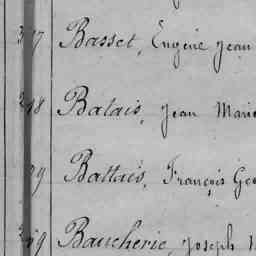 Basset, Eugène Jean
Batais, Jean Marie
Battais, François
Baucherie, Joseph